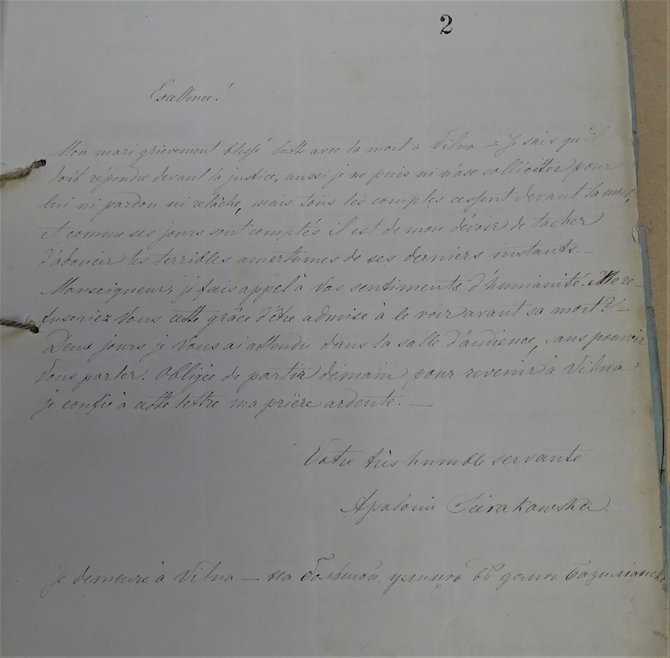 2
Excellence!
Mon mari grievement blessé lutte avec la mort à Vilna – Je sais qu'il
doit repondre devant la justice, aussi je ne puis ni n'ose solliciter pour
lui ni pardon ni relâche, mais tous les comptes cessent devant la mort,
et comme ses jours sont comptés il est de mon dévoir de tacher
d'adoucir les terribles amertumes de ses derniers instants –
Monseigneur, je fais appel à vos sentiments d'humanité. Me re-
fuseriez Vous cette grâce d'être admise à le voir avant sa mort? –
Deux jours je Vous ai attendu dans la salle d'audience, sans pouvoir
Vous parler. Obligée de partir démain pour revenir à Vilna
je confie à cette lettre ma prière ardente. —
Votre très humble servante
Apalonie Sierakowska.
Je demeure à Vilna – на большой, улицѣ въ домѣ